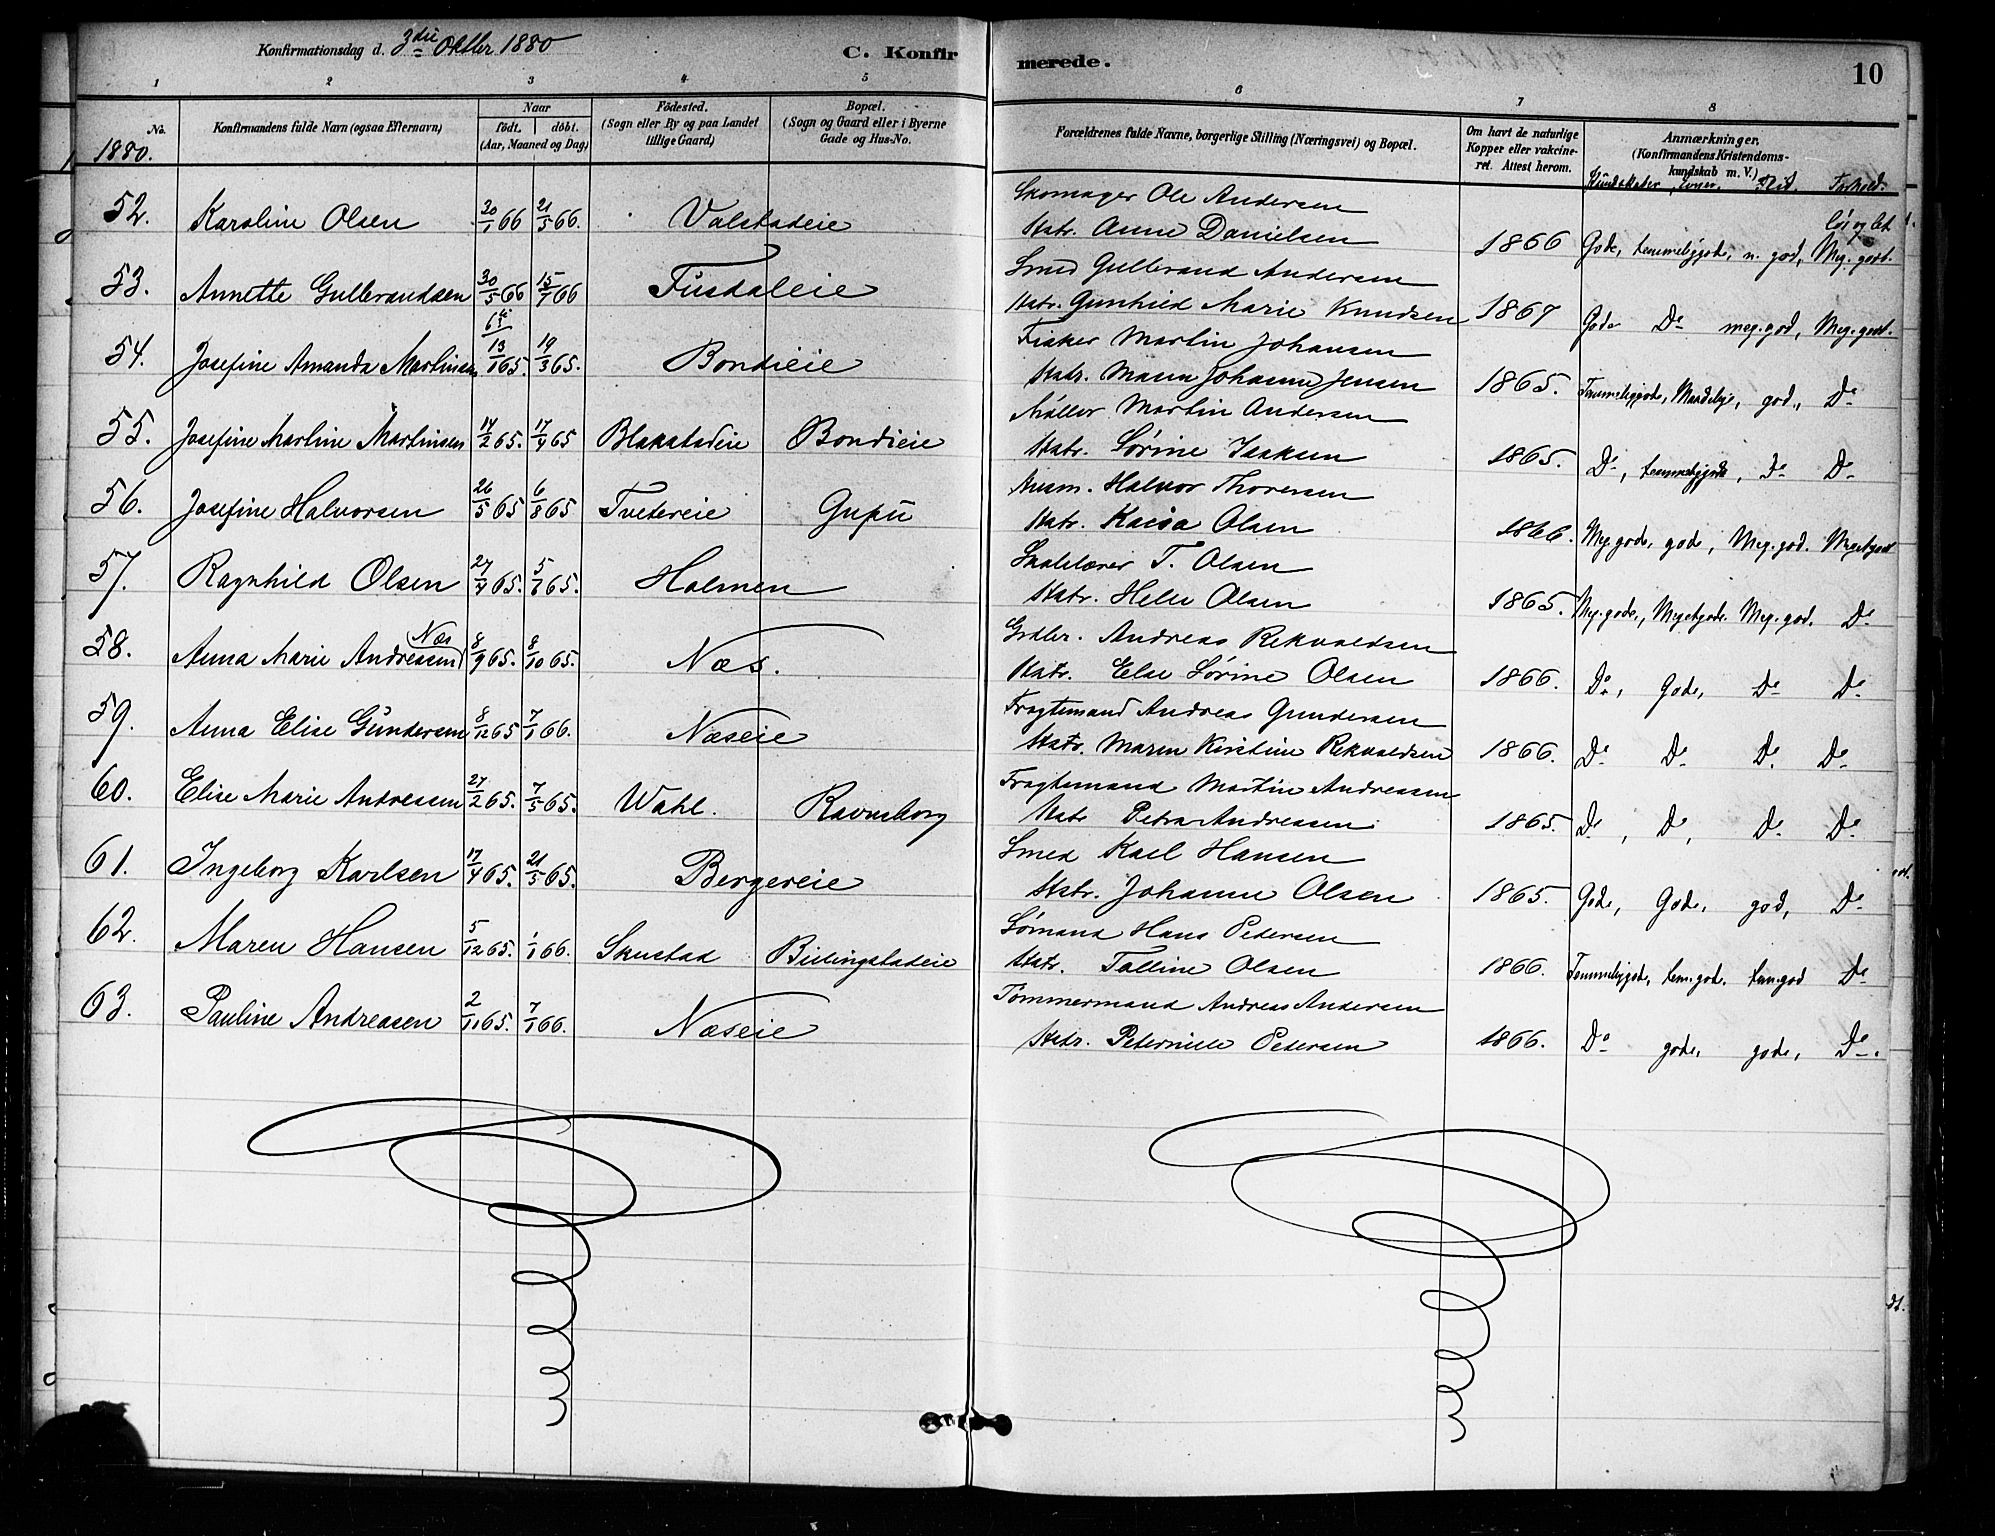 Konfirmationsdag d. 3die Oktbr 1880
C. Konfirmerede.
10
1 2 3 4 5 6 7 8
No.
Konfirmandens fulde Navn (ogsaa Efternavn)
Naar
født. døbt.
(Aar, Maaned og Dag)
Fødested.
(Sogn eller By og paa Landet
tillige Gaard)
Bopæl.
(Sogn og Gaard eller i Byerne
Gade og Hus-No.
Forældrenes fulde Navne, borgerlige Stilling (Næringsvei) og Bopæl.
Om havt de naturlige
Kopper eller vakcine-
ret. Attest herom.
Anmærkninger.
(Konfirmandens Kristendoms-
kundskab m. V.)
Kundskaber, Evner. Flid. Forhold.
1880.
Skomager Ole Andersen
52. Karoline Olsen 20/1 66 21/5 66. Valstadeie
Hstr. Anne Danielsen 1866 Gode, temmeliggode, n. god, Meg. godt.
Smed Gulbrand Andersen
53. Annette Gulbrandsen 30/5 66 15/7 66 Fusdaleie
Hstr. Gunhild Marie Knudsen 1867 Gode Do meg. god, Meg. godt.
Fisker Martin Johansen
54. Josefine Amanda Martinsen 13/1 65. 19/3 65. Bondieie
Hstr. Maren Johanne Jensen 1865. Temmeliggode, god, Do
Møller Martin Andersen
55. Josefine Martine Martinsen 14/2 65. 17/4 65 Blakstadeie Bondieie
Hstr. Sørine Isaksen 1865. Do, temmeliggode, Do Do
Husm. Halvor Thoresen
56. Josefine Halvorsen 26/5 65 6/8 65 Tvetereie Gupu
Hstr. Kaisa Olsen 1866. Meg. gode, gode, Meg. god. Megetgodt
Skolelærer T. Olsen
57. Ragnhild Olsen 27/4 65. 5/6 65. Holmen
Hstr. Helle Olsen 1865. Meg. gode, Megetgode. Meg. god. Do
Grdbr. Andreas Rekvaldsen
58. Anna Marie Andreasen (Næs) 8/9 65. 8/10 65. Næs.
Hstr. Else Sørine Olsen 1866. Do, Gode, Do Do
Fragtemand Andreas Gundersen
59. Anna Elise Gundersen 8/12 65 7/1 66. Næseie
Hstr. Maren Kirstine Rekvaldsen 1866. Do Do Do Do
Fragtemand Martin Andreasen
60. Elise Marie Andreasen 27/2 65. 7/5 65. Wahl. Ravnsborg
Hstr Petra Andreasen 1865. Do, Do, Do Do
Smed Karl Hansen
61. Ingeborg Karlsen 17/4 65. 21/5 65. Bergereie
Hstr. Johanne Olsen 1865. Gode, Gode, god, Do
Sømand Hans Pedersen
62. Maren Hansen 5/12 65. 1/1 66. Skustad Billingstadeie
Hstr. Talline Olsen 1866. Temmeliggode, tem. god. tem. god Do
Tømmermand Andreas Andersen
63. Pauline Andreasen 2/11 65. 7/1 66. Næseie
Hstr. Peternille Pedersen 1866. Do gode, gode, Do.